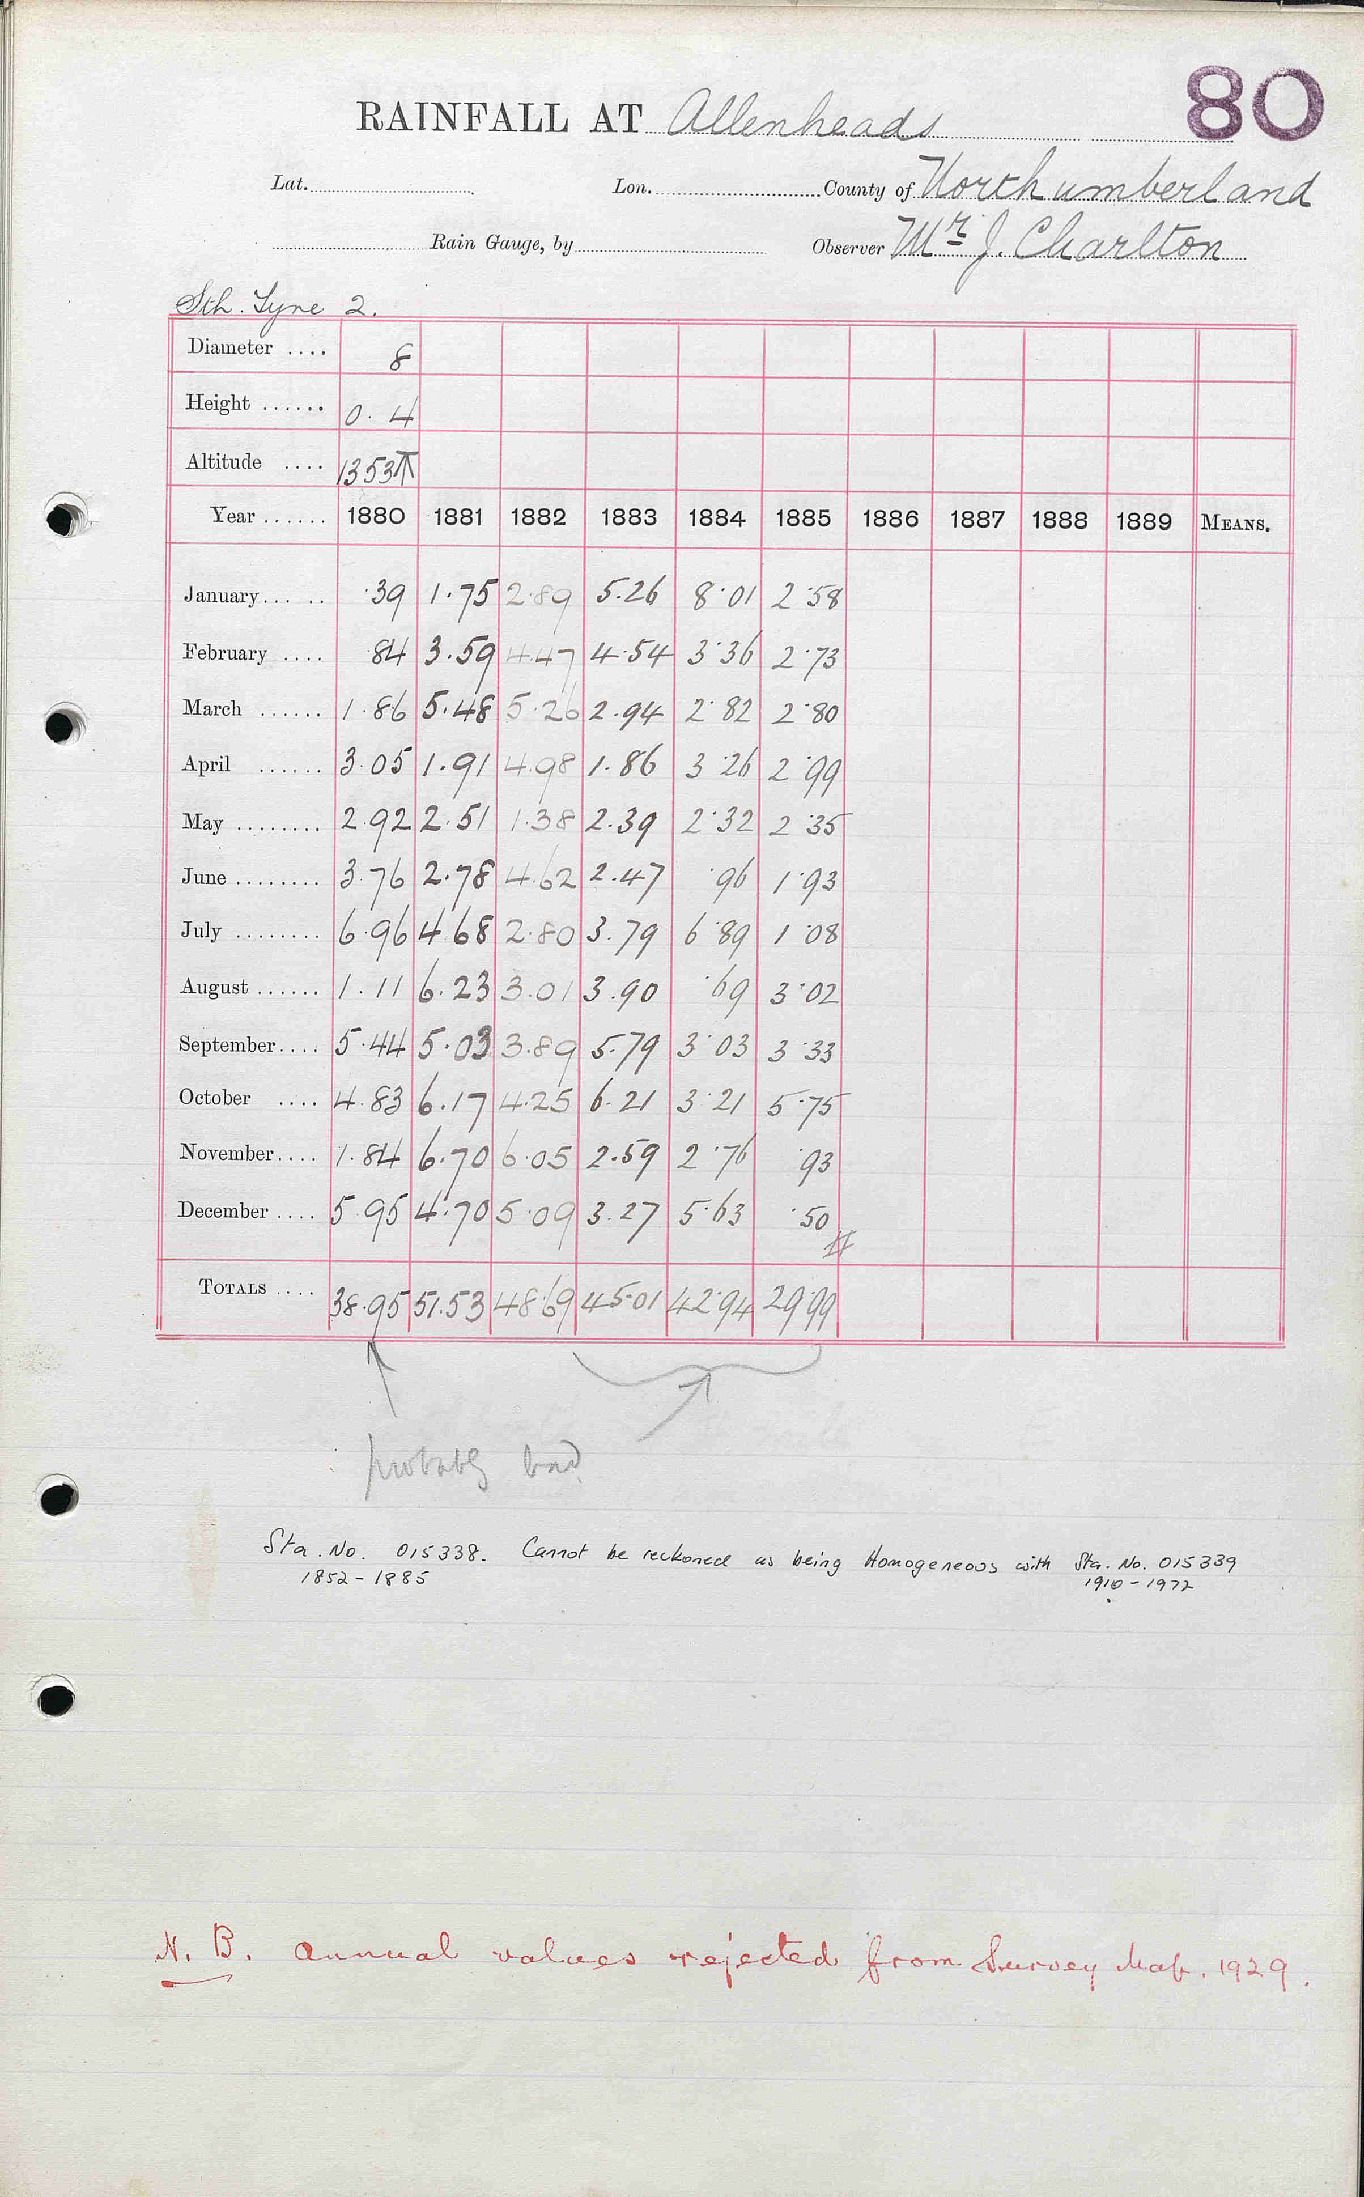 80
RAINFALL AT Allenheads
Lat. Lon. County of Northumberland
Rain Gauge, by Observer Mr J. Charlton
Sth. Tyne 2.
Diameter .... 8
Height ...... 0.4
Altitude .... 1353
Year ...... 1880 1881 1882 1883 1884 1885 1886 1887 1888 1889 MEANS.
January ...... .39 1.75 2.89 5.26 8.01 2.58
February .... .84 3.59 4.47 4.54 3.36 2.73
March ...... 1.86 5.48 5.26 2.94 2.82 2.80
April ...... 3.05 1.91 4.98 1.86 3.26 2.99
May ........ 2.92 2.51 1.38 2.39 2.32 2.35
June ........ 3.76 2.78 4.62 2.47 .96 1.93
July ........ 6.96 4.68 2.80 3.79 6.89 1.08
August ...... 1.11 6.23 3.01 3.90 .69 3.02
September .... 5.44 5.03 3.89 5.79 3.03 3.33
October .... 4.83 6.17 4.25 6.21 3.21 5.75
November .... 1.84 6.70 6.05 2.59 2.76 .93
December .... 5.95 4.70 5.09 3.27 5.63 .50
TOTALS .... 38.95 51.53 48.69 45.01 42.94 29.99
probably bad
Sta. No. 015338. Cannot be reckoned as being Homogeneous with Sta. No. 015339
1852 - 1885 1910 - 1972
N. B. Annual values rejected from Survey Map. 1929.